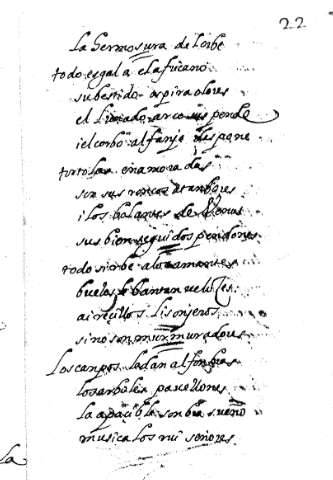 22
la hermosura de l orbe
todo es gala el africano
su bestido espira olores
el lunado arco suspende
i el corbo alfanje depone
tortolas enamoradas
son sus roncos atambores
i los bolantes de Venus
sus bien seguidos pendones
todo sirbe a los amantes
buelas baten veloces
airecillos lisonjeros
si no son murmuradores
los campos le dan alfombras
los arboles pavellones
la apacible sombra sueño
musica los rui señores
La